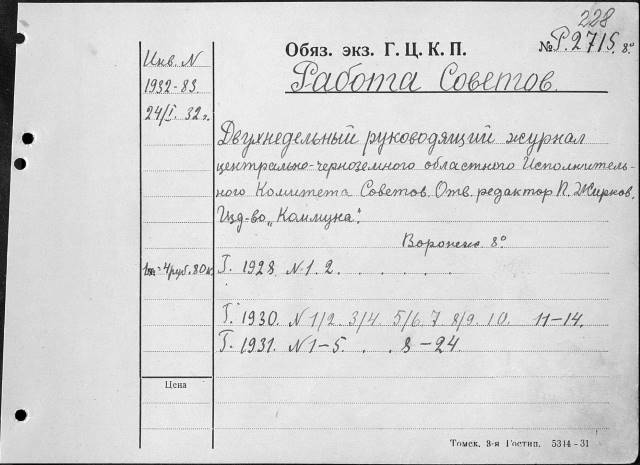 228
Обяз. экз. Г. Ц. К. П.
№ Р.2715. 8°
Работа Советов.
Инв. N
1932-83
24/I. 32 г.
Двухнедельный руководящий журнал
центрально-черноземного областного Исполнитель-
ного Комитета Советов. Отв. редактор П. Жирков.
Изд-во „Коммуна".
Воронеж 8°
4 руб. 80 к.
Г. 1928 N. 1. 2. . . . .
Г. 1930. N 1/2. 3/4. 5/6. 7. 8/9. 10. 11-14.
Г. 1931. N 1-5. . . 8-24
Цена
Томск. 3-я Гостип. 5314-31